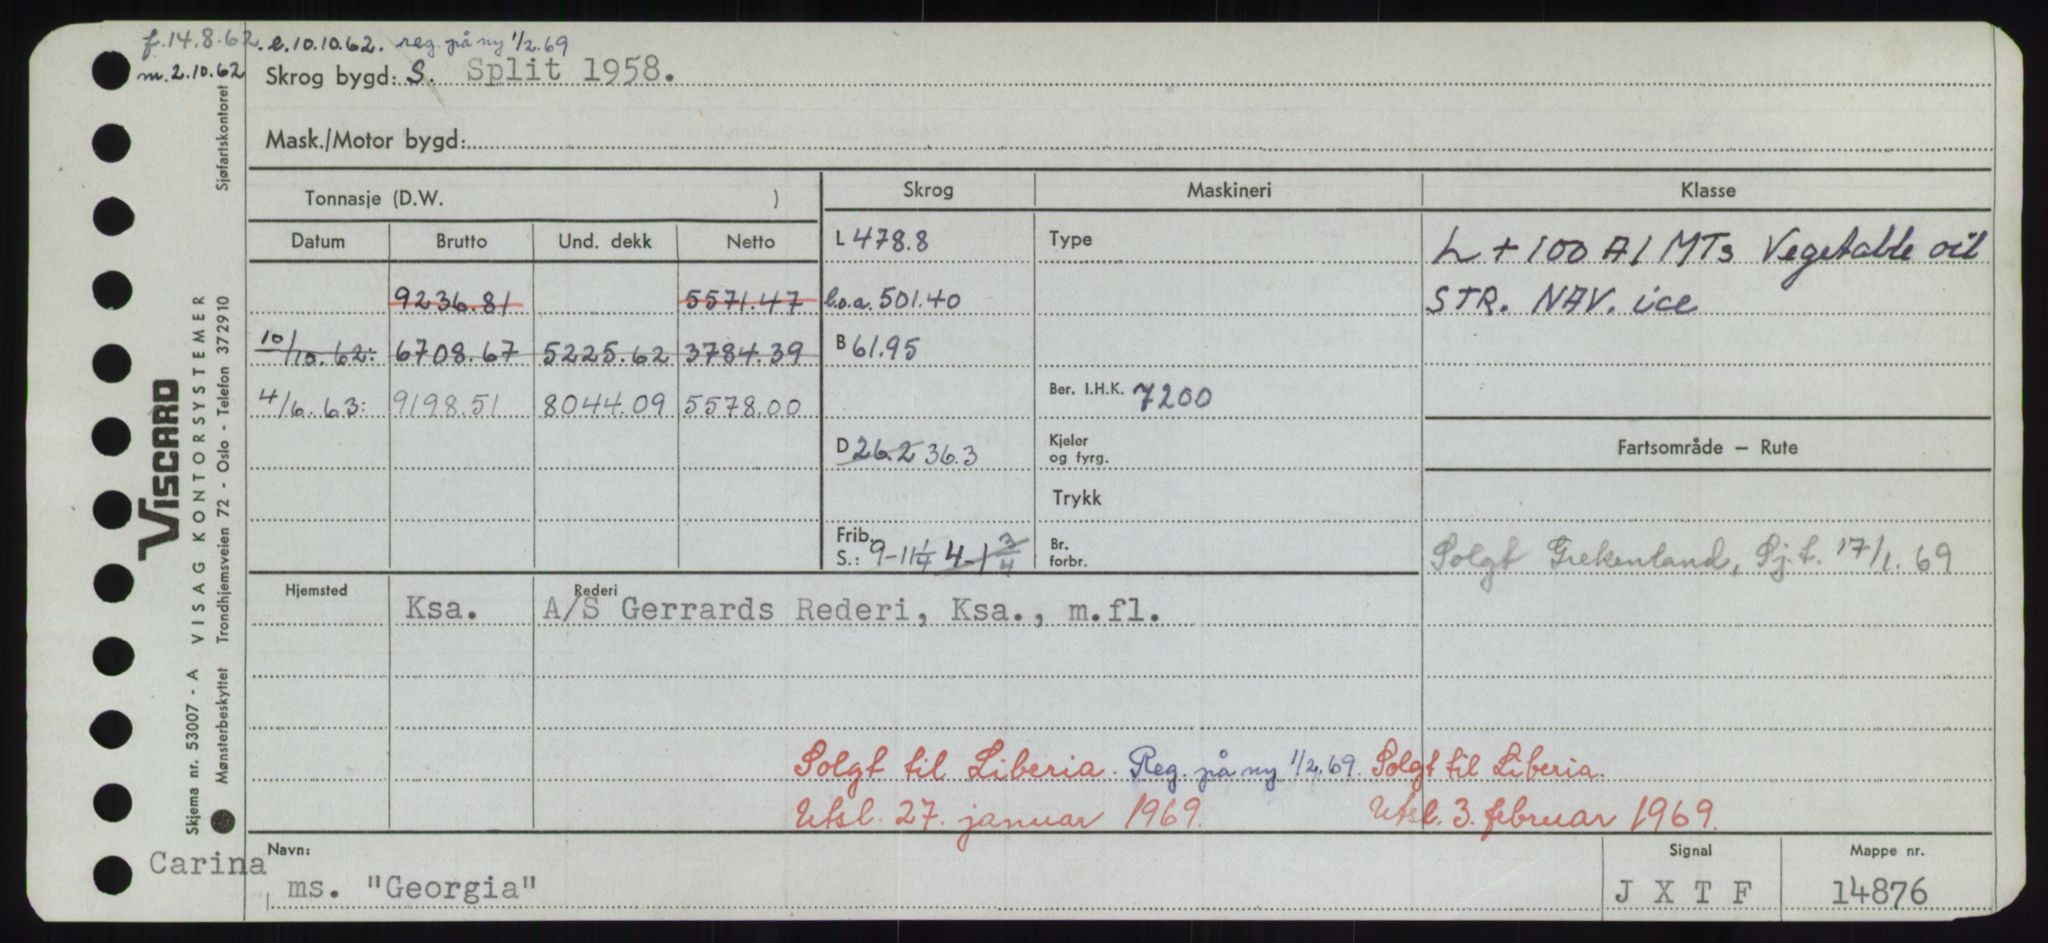 f. 14.8.62. e.10.10.62. reg. på ny 1/2.69
m. 2.10.62
Skrog bygd: S. Split 1958.
Mask./Motor bygd:
Tonnasje (D.W. )
Skrog
Maskineri
Klasse
Datum Brutto Und. dekk Netto
L 478.8
Type
L + 100 A1 MTs Vegetable oil
9236.81 5571.47
l.o.a. 501.40
STR. NAV. ice
10/10.62: 6708.67 5225.62 3784.39
B 61.95
4/6.63: 9198.51 8044.09 5578.00
Ber. I.H.K. 7200
D 26.2 36.3
Kjeler
og fyrg.
Fartsområde – Rute
Trykk
Frib.
S.: 9-11 1/4 4-1 3/4
Br.
forbr.
Solgt Grekenland, Sj.t. 17/1.69
Hjemsted
Rederi
Ksa. A/S Gerrards Rederi, Ksa., m.fl.
Solgt til Liberia. Reg. på ny 1/2.69. Solgt til Liberia.
Utsl. 27. januar 1969. Utsl. 3. februar 1969.
Navn:
Signal
Mappe nr.
Carina
ms. "Georgia"
J X T F
14876
VISCARD
VISAG KONTORSYSTEMER
Sjøfartskontoret
Trondhjemsveien 72 - Oslo - Telefon 372910
Skjema nr. 53007 - A
Mønsterbeskyttet